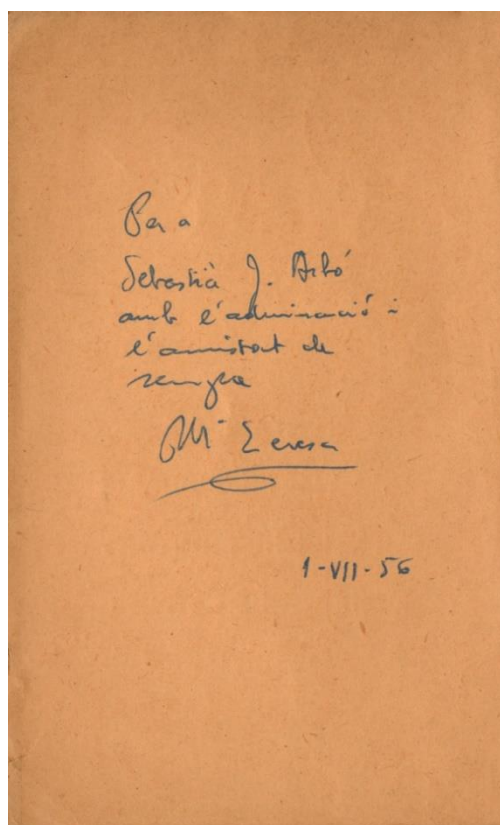 Per a
Sebastià J. Arbó
amb l'admiració i
l'amistat de
sempre
Mª Teresa
1-VII-56